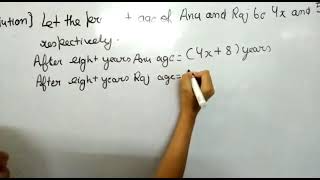 ution] Let the pr t age of Anu and Raj be 4x and
respectively.
After eight years Anu age = (4x+8) years
After eight years Raj age =